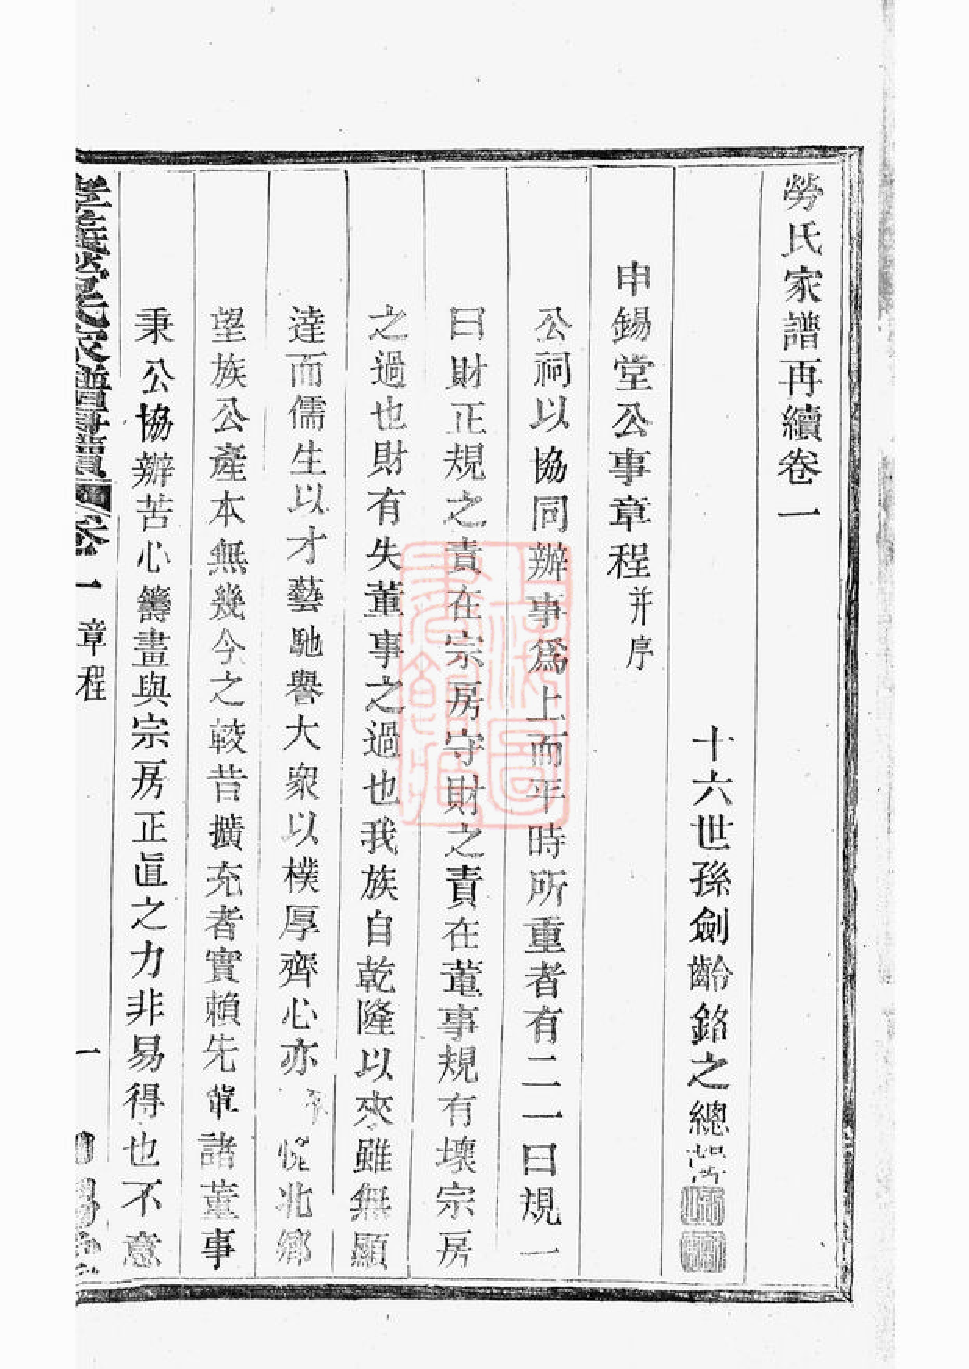 勞氏家譜再續卷一
十六世孫劍齡銘之總
申錫堂公事章程并序
公祠以協同辦事爲上而平時所重者有二一曰規一
曰財正規之責在宗房守財之責在董事規有壞宗房
之過也財有失董事之過也我族自乾隆以來雖無顯
達而儒生以才藝馳譽大衆以樸厚齊心亦北鄉
望族公產本無幾今之較昔擴充者實賴先輩諸董事
秉公協辦苦心籌畫與宗房正直之力非易得也不意
氏家譜再續卷一 章程 一